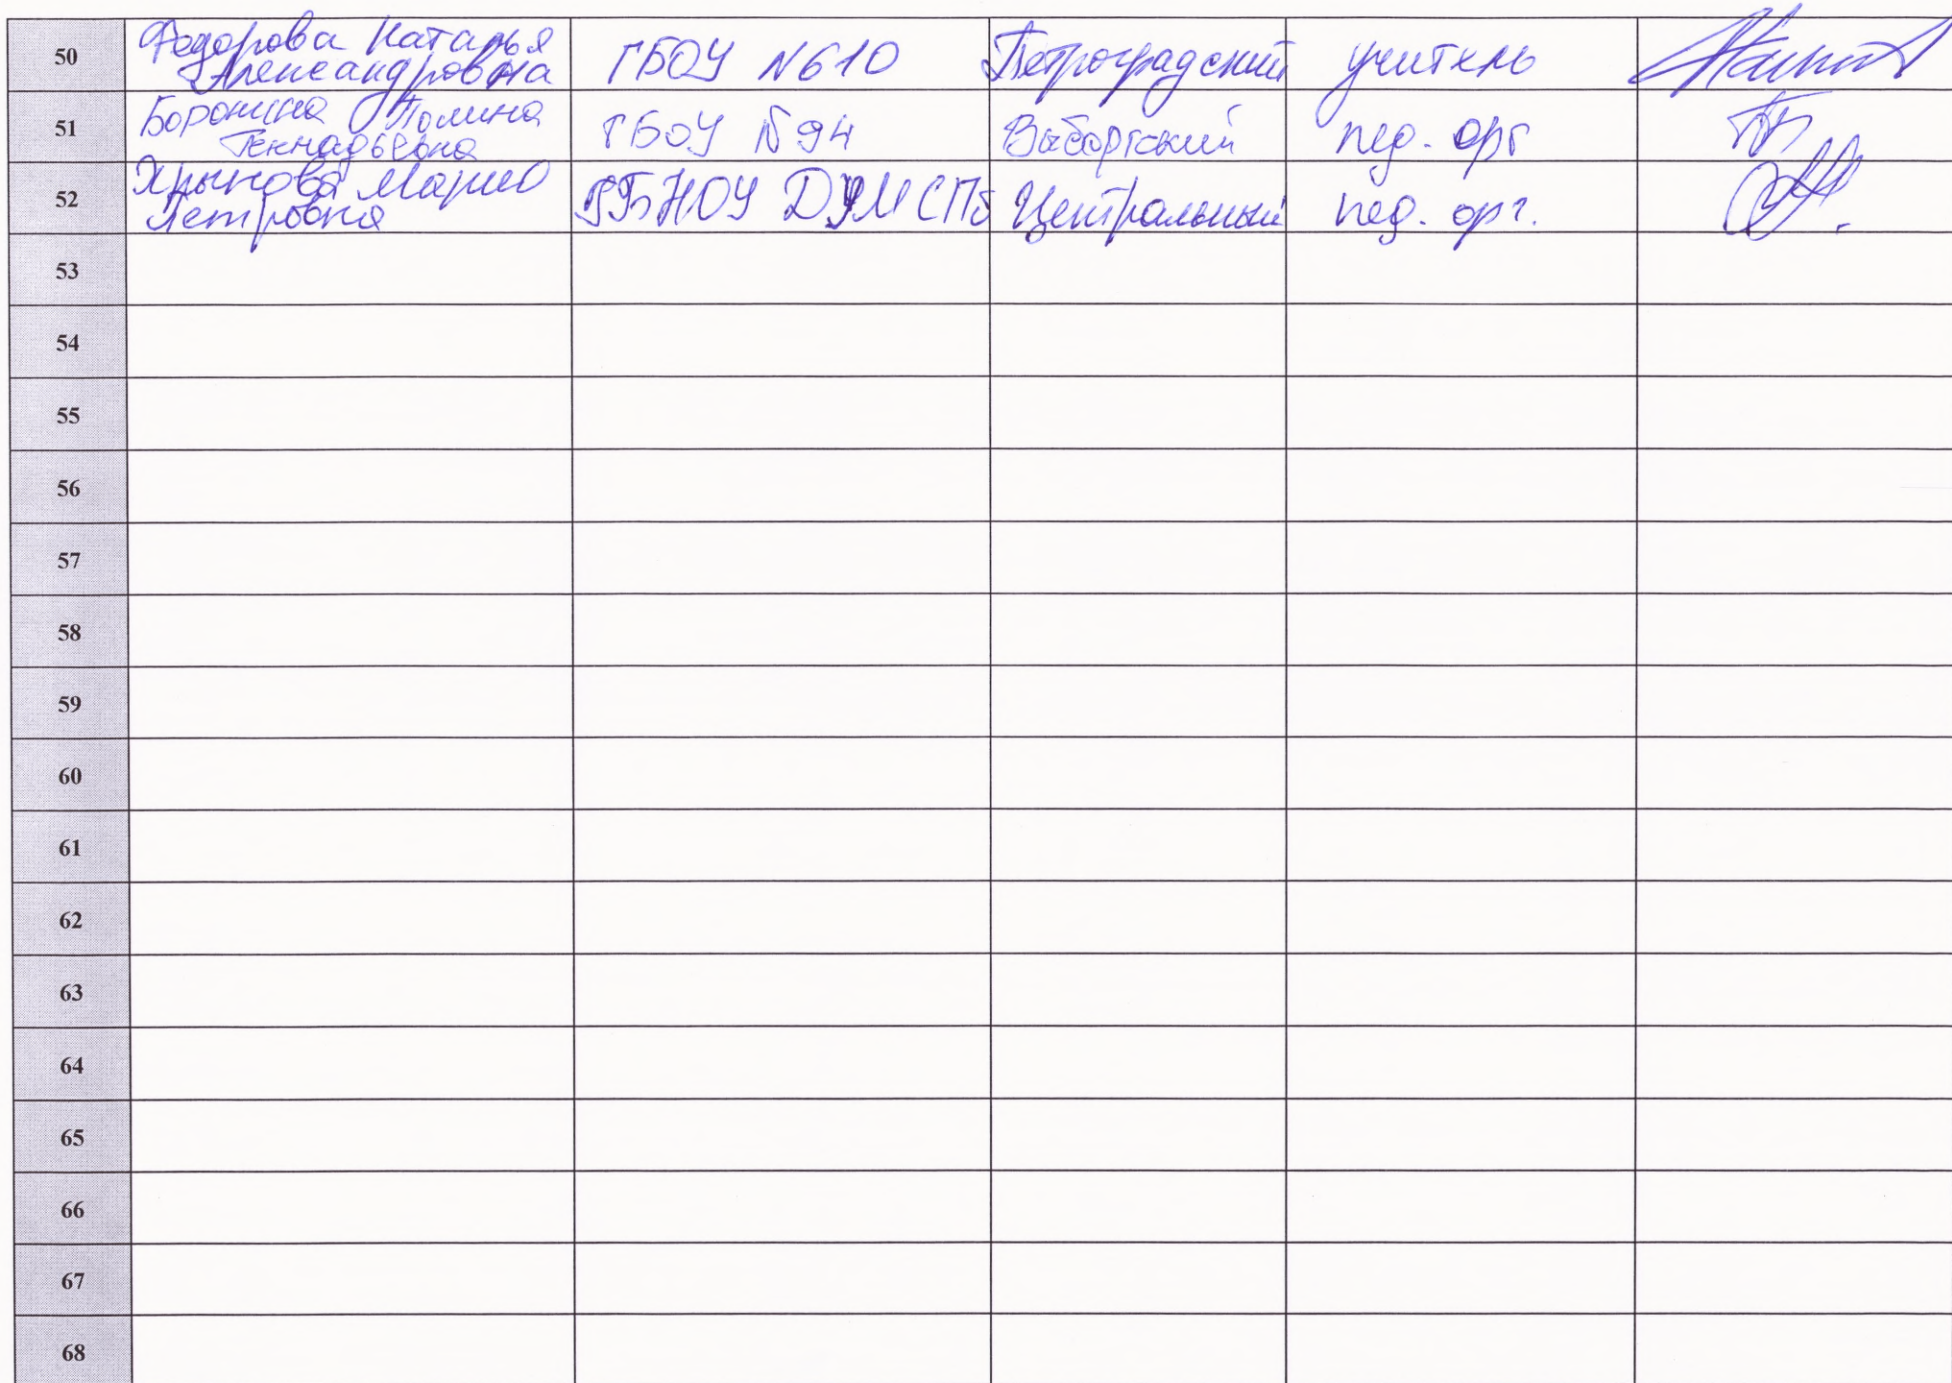 50 Федорова Наталья Александровна ГБОУ N610 Петроградский учитель
51 Боронина Полина Геннадьевна ГБОУ N94 Выборгский пед. орг
52 Мария Петровна ГБНОУ ДУМ СПб Центральный пед. орг.
53
54
55
56
57
58
59
60
61
62
63
64
65
66
67
68